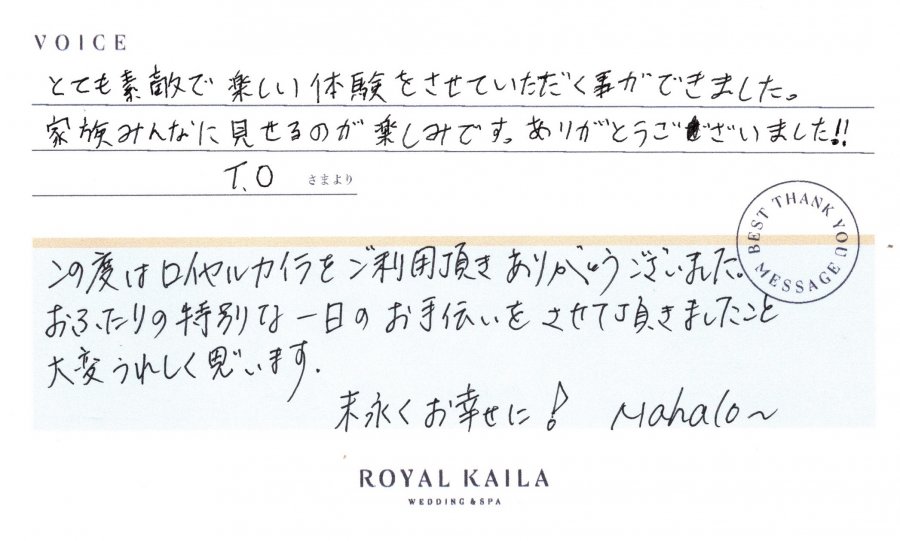 VOICE
とても素敵で楽しい体験をさせていただく事ができました。
家族みんなに見せるのが楽しみです。ありがとうございました!!
T.O さまより
BEST THANK YOU MESSAGE
この度はロイヤルカイラをご利用頂きありがとうございました。
おふたりの特別な一日のお手伝いをさせて頂きましたこと
大変うれしく思います.
末永くお幸せに! Mahalo~
ROYAL KAILA
WEDDING & SPA